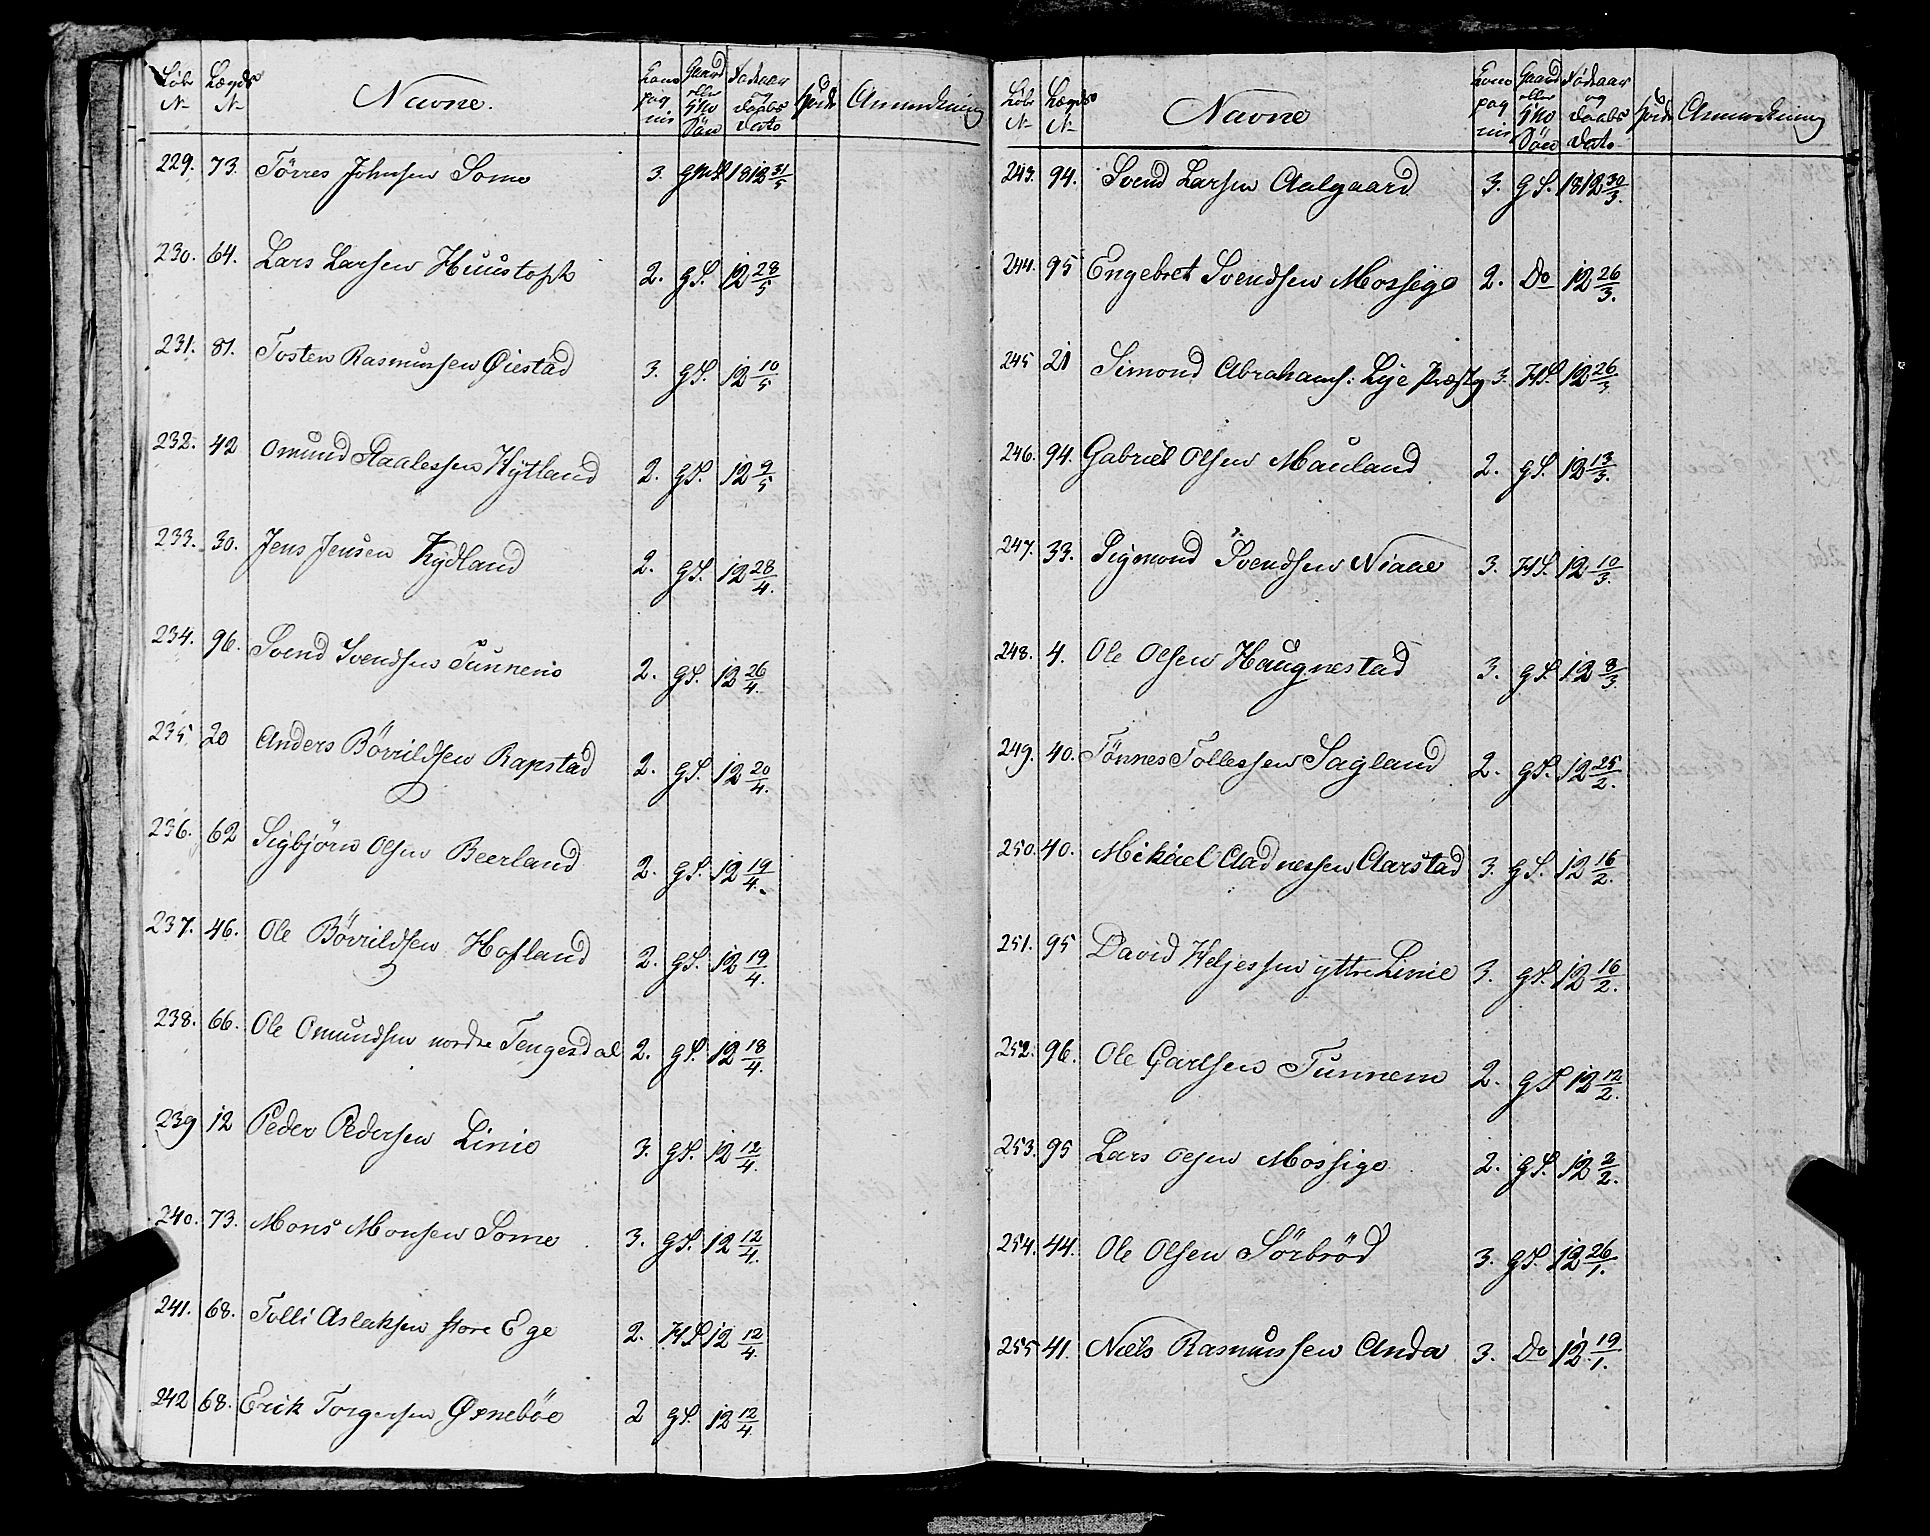 Løb Lægds Navne. Kom Gaard Fødeaar Høide Anmerkning
N- N- pag eller og
nie H: M Daabs
Søn Dato
229. 73. Tørres Johnsen Some 3. 1812 31/5
230. 64. Lars Larsen Huustoft 2. G S. 12 28/5
231. 81. Tosten Rasmussen Øiestad 3. G S. 12 10/5
232. 42 Omund Staalessen Hytland 2. G S. 12 9/5
233. 30. Jens Jensen Kydland 2. G S. 12 28/4.
234. 96. Svend Svendsen Tunnem 2. G S. 12 26/4.
235. 20 Anders Børrildsen Rapstad 2. G S. 12 20/4.
236. 62 Sigbjørn Olsen Beerland 2. G S. 12 19/4.
237. 46. Ole Børrildsen Hofland 2. G S. 12 19/4.
238. 66. Ole Omundsen nordre Tengesdal 2. G S. 12 18/4.
239 12 Peder Pedersen Linie 3. G S. 12 12/4.
240. 73. Mons Monsen Some 3. G S. 12 12/4.
241. 68. Tolli Aslaksen store Ege 2. H S 12 12/4.
242 68. Erik Torgersen Øsnebøe 2 G S. 12 12/4.
Løb Lægds Navne Kom Gaard Fødeaar Høide Anmerkning
N- N- pag eller og
nie Daabs
Søn Dato
243. 94. Svend Larsen Aalgaard 3. G S. 1812 30/3.
244. 95 Engebret Svendsen Mossige 2. Do 12 26/3.
245 21 Simond Abrahams: Lye Præstg 3. H S. 12 26/3.
246. 94. Gabriel Olsen Mauland 2. G S. 12 13/3.
247. 33. Sigmond Svendsen Niaae 3. H S. 12 10/3.
248. 4. Ole Olsen Haugnestad 3. G S 12 8/3.
249. 40. Tønnes Tollessen Sagland 2. G S. 12 25/2.
250. 40. Mikael Aadnessen Aarstad 3. G S. 12 16/2.
251. 95 David Heljessen yttre Linie 3. G S. 12 16/2.
252. 96. Ole Carlsen Tunnem 2. G S 12 12/2.
253. 95 Lars Olsen Mossige 2. G S. 12 2/2.
254. 44. Ole Olsen Sörbröd 3. G S. 12 26/1.
255 41. Niels Rasmussen Anda 3. Do 12 19/1.